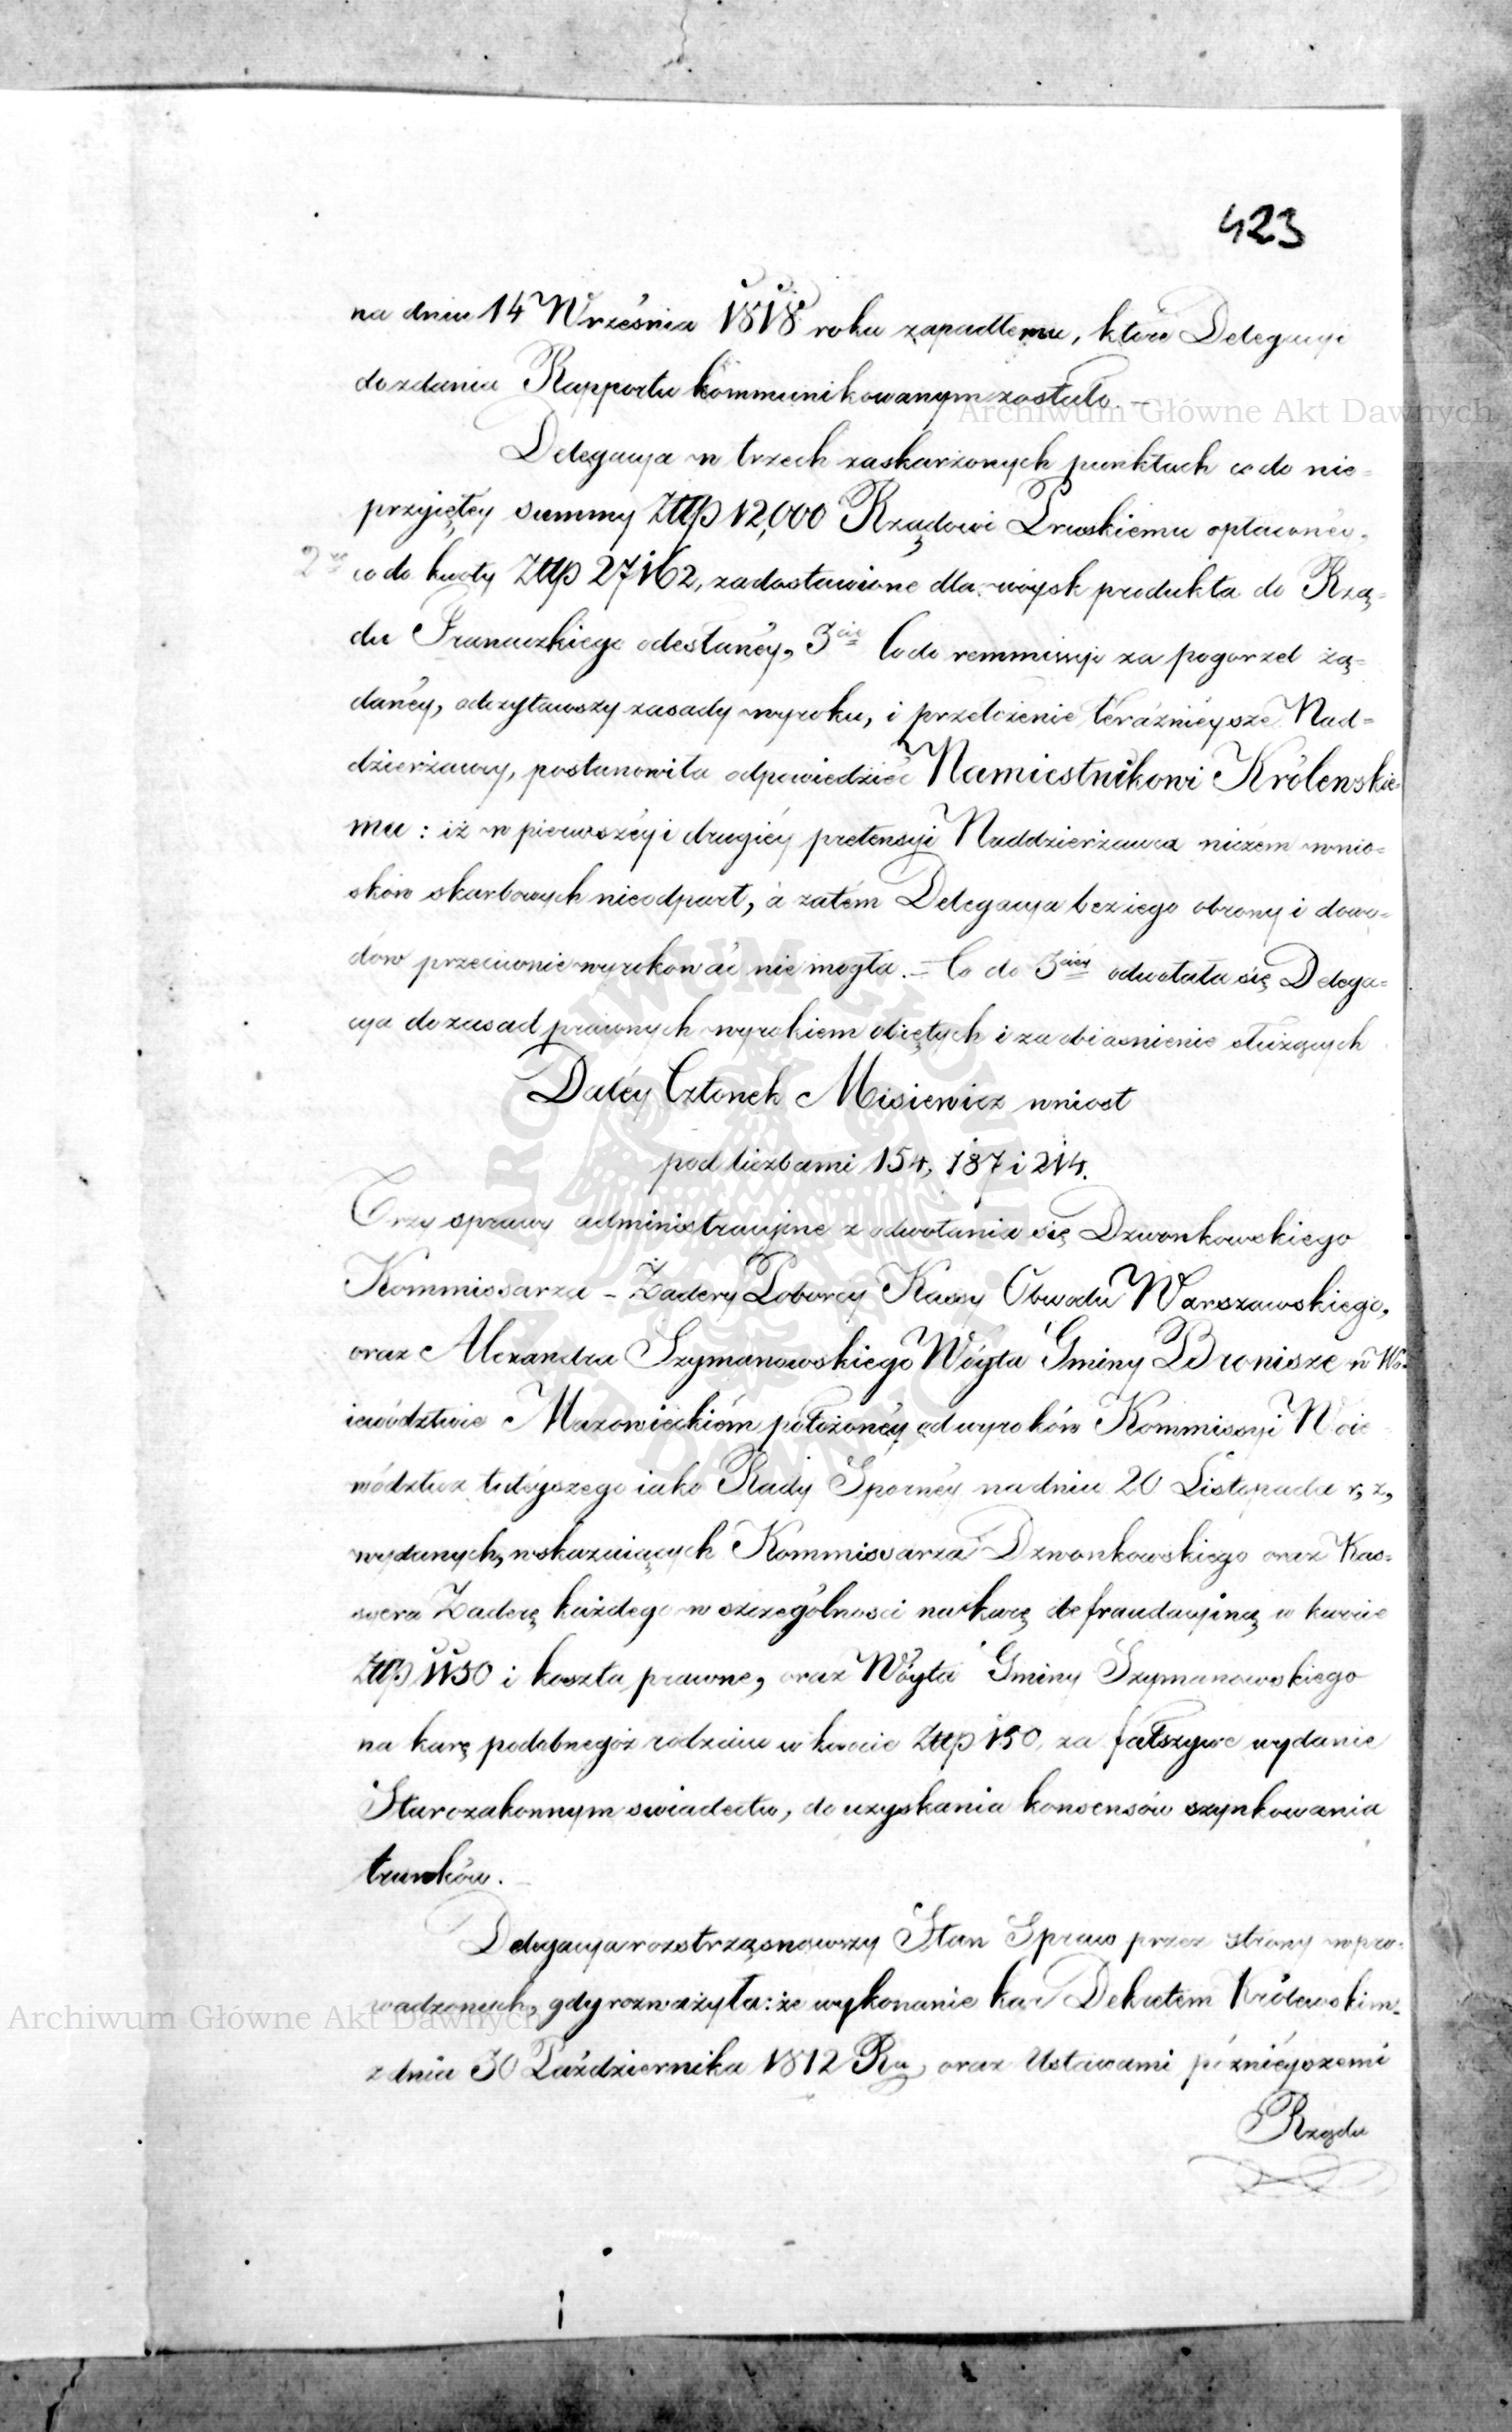 423
na dniu 14 Września 1818 roku zapadłemu, które Delegacyi
do zdania Rapportu kommunikowanym zostało. —
Delegacya w trzech zaskarżonych punktach co do nie-
przyiętéy summy Złłp 12,000 Rządowi Pruskiemu opłaconéy,
2re co do kwoty Złłp 27162, za dostawione dla woysk produkta do Rzą-
du Francuzkiego odesłanéy, 3cie Co do remmissyi za pogorzel żą-
danéy, odczytawszy zasady wyroku, i przełożenie teráznieysze Nad-
dzierżawcy, postanowiła odpowiedzieć Namiestnikowi Królewskie-
mu: iż w pierwszéy i drugiéy pretensyi Naddzierżawca niczem wnio-
sków skarbowych nieodparł, a zatém Delegacya bez iego obrony i dowo-
dów przeciwnie wyrokować nie mogła. — Co do 3ciéy odwołała się Delega-
cya do zasad prawnych wyrokiem obiętych i za obiasnienie służących
Daléy Członek Misiewicz wniosł
pod liczbami 154, 187 i 214.
Trzy sprawy administracyjne z odwołania się Dzwonkowskiego
Kommissarza – Zadery Poborcy Kassy Obwodu Warszawskiego,
oraz Alexandra Szymanowskiego Wóyta Gminy Bronisze w Wo-
iewództwie Mazowieckiém położonéy od wyroków Kommissyi Woie
wództwa tutéyszego iako Rady Spornéy na dniu 20 Listopada r, z,
wydanych, wskazuiących Kommissarza Dzwonkowskiego oraz Kas-
sera Zaderę każdego w szczególnosci na karę defraudacyiną w kwocie
Złłp 1150 i koszta prawne, oraz Wóyta Gminy Szymanowskiego
na karę podobnegoż rodzaiu w kwocie Złłp 150, za fałszywe wydanie
Starozakonnym swiadectw, do uzyskania konsensów szynkowania
trunków. —
Delegacya rozstrząsnąwszy Stan Spraw przez strony wpro-
wadzonych, gdy rozważyła: że wykonanie kar Dekretem Królewskim
z dnia 30 Października 1812 Ru, oraz Ustawami późniéyszemi
Rządu
Archiwum Główne Akt Dawnych
Archiwum Główne Akt Dawnych